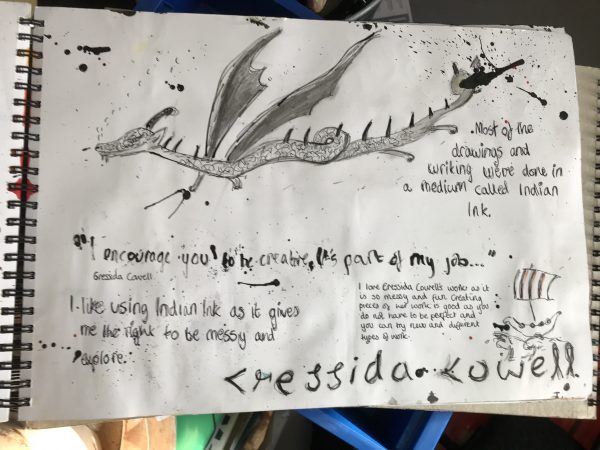 Most of the
drawings and
writing were done in
a medium called Indian
Ink.
"I encourage you to be creative, It's part of my job..."
Cressida Cowell
I like using Indian Ink as it gives
me the right to be messy and
explore.
I love Cressida Cowell's works as it
is so messy and fun. Creating
pieces of her work is good as you
do not have to be perfect and
you can try new and different
types of work.
Cressida Cowell